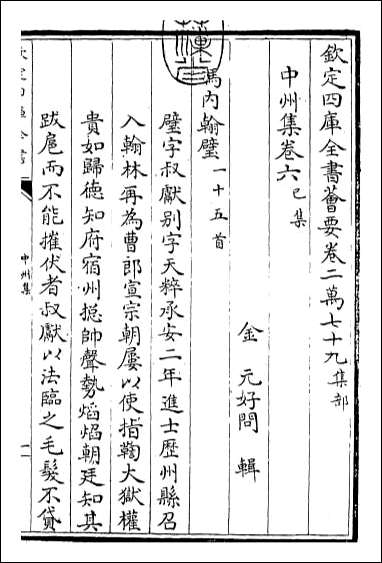 欽定四庫全書薈要卷二萬七十九集部
中州集卷六己集
金 元好問 輯
馮内翰璧一十五首
璧字叔獻别字天粹承安二年進士歴州縣召
入翰林再為曹郎宣宗朝屢以使指鞫大獄權
貴如歸徳知府宿州揔帥聲勢焰焰朝廷知其
跋扈而不能摧伏者叔獻以法臨之毛髮不貸
中州集
一